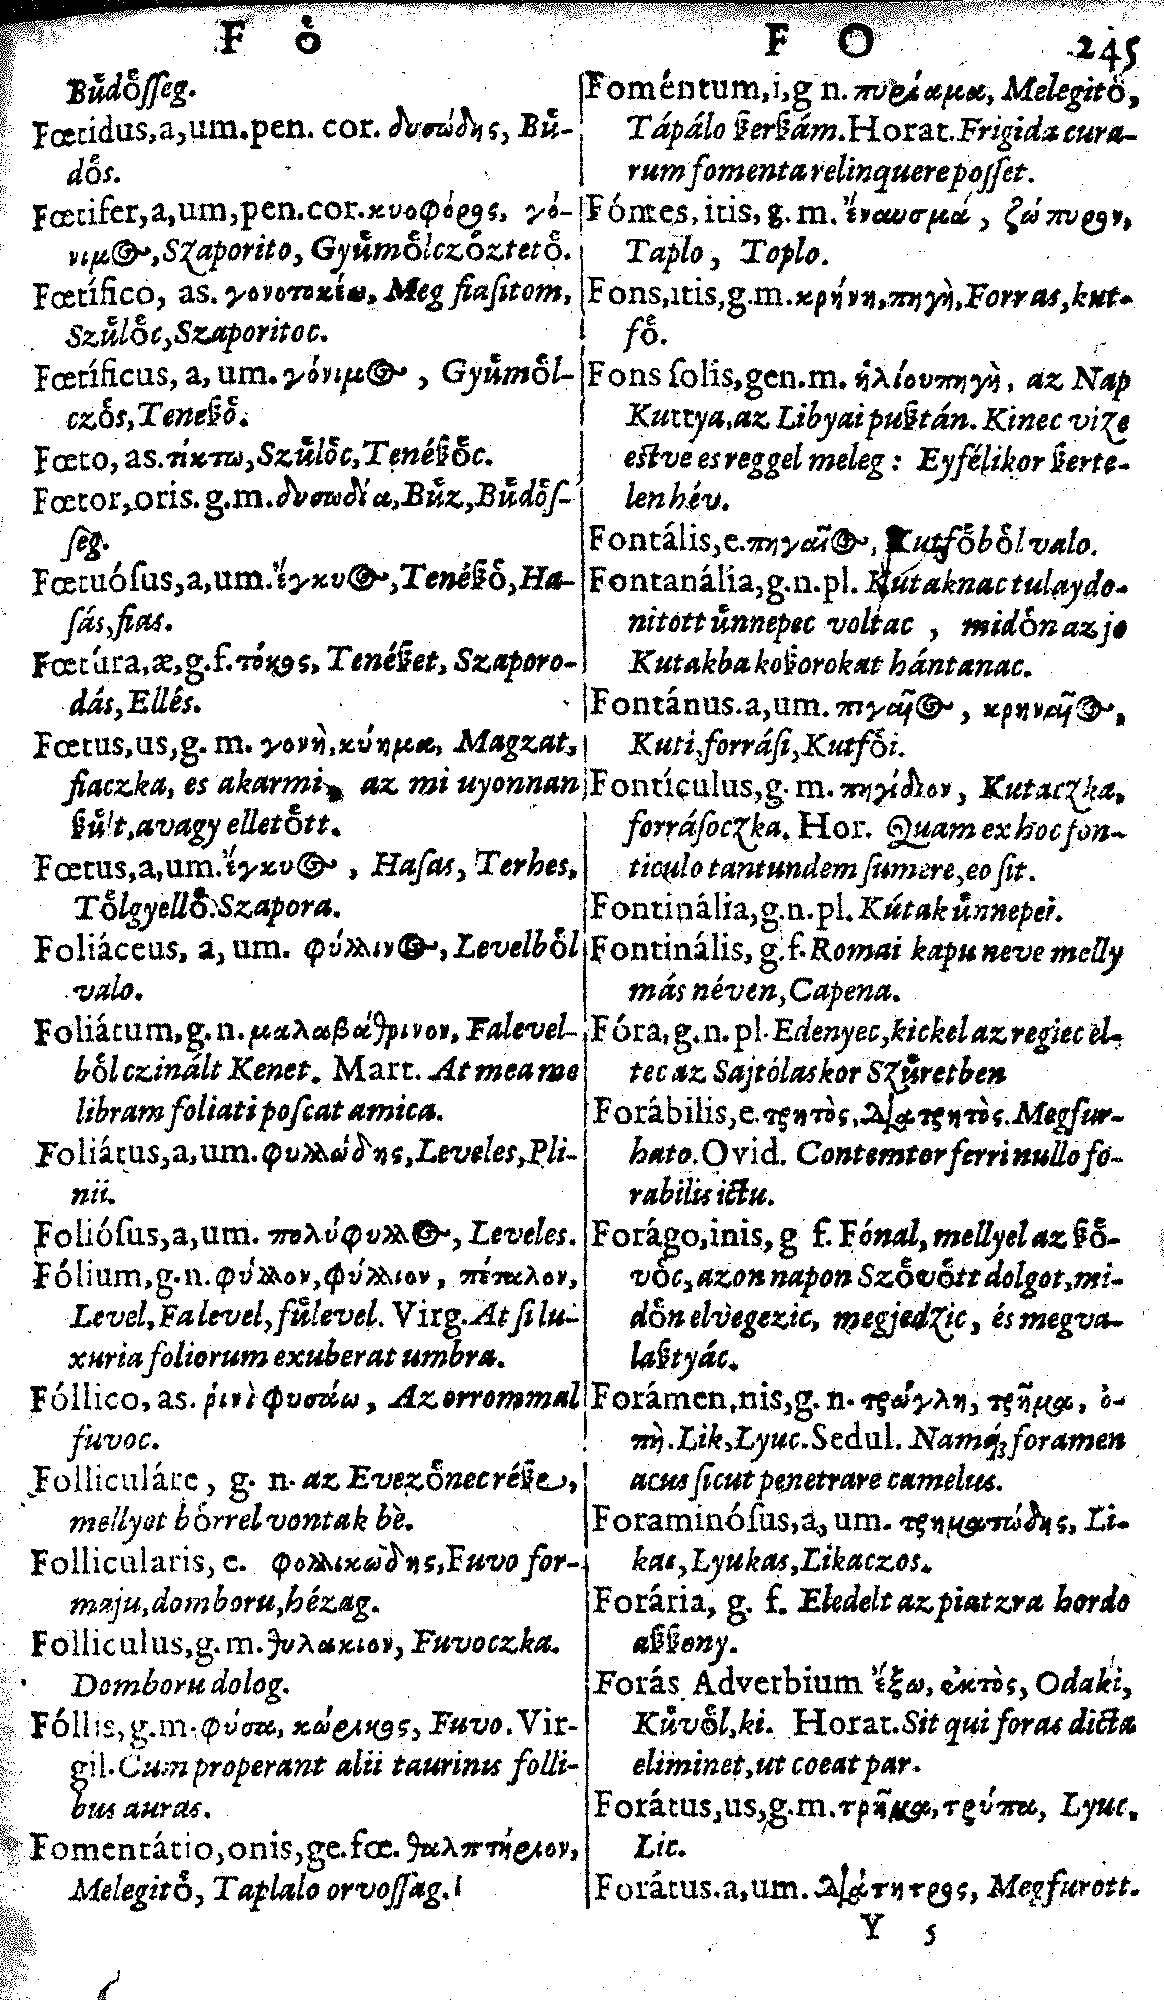 F oͤ
F O 245
Buͤdoͤſſeg.
Fœtidus,a,um.pen. cor. δυσώδης, Buͤ-
doͤs.
Fœtifer,a,um,pen.cor.κυοφόρος, γό-
νιμος, Szaporito, Gyuͤmoͤlczoͤztetoͤ.
Fœtífico, as. γονοτοκέω, Meg fiaſitom,
Szuͤloͤc,Szaporitoc.
Fœtíficus, a, um. γόνιμος, Gyuͤmoͤl-
czoͤs,Teneßoͤ.
Fœto, as.τίκτω,Szuͤloͤc,Tenéßoͤc.
Fœtor,oris.g.m.δυσωδία,Buͤz,Buͤdoͤſ-
ſég.
Fœtuóſus,a,um.ἔγκυος,Tenéßoͤ,Ha-
ſás,fias.
Fœtúra,æ,g.f.τόκος, Tenéßet, Szaporo-
dás,Ellés.
Fœtus,us,g. m. γονὴ,κύημα, Magzat,
fiaczka, es akarmi, az mi uyonnan
ßuͤlt,avagy elletoͤtt.
Fœtus,a,um.ἔγκυος, Haſas, Terhes,
Toͤlgyelloͤ.Szapora.
Foliáceus, a, um. φύλλινος,Levelboͤl
valo.
Foliátum,g.n.μαλαβάθρινον,Falevel-
boͤl czinált Kenet. Mart. At mea me
libram foliati poſcat amica.
Foliátus,a,um.φυλλώδης,Leveles,Pli-
nii.
Folióſus,a,um. πολύφυλλος,Leveles.
Fólium,g.n.φύλλον,φύλλιον, πέταλον,
Level,Falevel,fuͤlevel. Virg.At ſi lu-
xuria foliorum exuberat umbra.
Fóllico, as. ῥινὶ φυσάω, Az orrommal
fuvoc.
Folliculáre, g. n. az Evezoͤnec réße,
mellyet boͤrrel vontak bè.
Follicularis, e. φολλικώδης,Fuvo for-
maju,domboru,hézag.
Folliculus,g.m.θυλακιον, Fuvoczka.
Domboru dolog.
Fóllis,g.m.φύσα, κώρυκος, Fuvo.Vir-
gil.Cum properant alii taurinis folli-
bus auras.
Fomentátio,onis,ge.fœ.θαλπτήριον,
Melegitoͤ, Taplalo orvoſſag.
Foméntum,i,g n.πυρίαμα, Melegitoͤ,
Tápálo ßerßám.Horat.Frigida cura-
rum fomenta relinquere poſſet.
Fómes, itis, g.m. ἔναυσμά, ζώπυρον,
Taplo, Toplo.
Fons,tis,g.m.κρήνη,πηγὴ,Forras,kut-
foͤ.
Fons ſolis,gen.m. ἡλίου πηγὴ, az Nap
Kuttya,az Libyai pußtán. Kinec vize
estve es reggel meleg: Eyfélikor ßerte-
len hév.
Fontális,e.πηγαῖος, Kutfoͤboͤl valo.
Fontanália,g.n.pl. Kútaknac tulaydo-
nitott uͤnnepec voltac, midoͤn az jo
Kutakba koßorokat hántanac.
Fontánus.a,um. πιγαῖος, κρηναῖος,
Kuti,forráſi,Kutfoͤi.
Fontículus,g. m. πηγίδιον, Kutaczka,
forráſoczka. Hor. Quam ex hoc fon-
ticulo tantundem ſumere,eo ſit.
Fontinália,g.n.pl. Kútak uͤnnepei.
Fontinális, g.f. Romai kapu neve melly
más néven,Capena.
Fóra,g.n.pl.Edenyec,kickel az regiec él-
tec az Sajtólaskor Szuͤretben
Forábilis,e.τρητὸς,διατρητὸς.Megfur-
hato.Ovid. Contemtor ferri nullo fo-
rabilis ictu.
Forágo,inis, g f. Fónal, mellyel az ßoͤ-
voͤc,azon napon Szoͤvoͤtt dolgot,mi-
doͤn elvegezic, megjedzic, és megva-
laßtyác.
Forámen,nis,g. n. τρώγλη, τρῆμα, ὀ-
πὴ.Lik,Lyuc.Sedul. Namq́; foramen
acus ſicut penetrare camelus.
Foraminóſus,a, um. τρηματώδης, Li-
kas,Lyukas,Likaczos.
Forária, g. f. Eledelt az piatzra hordo
aßßony.
Forás Adverbium ἔξω, ἐκτὸς, Odaki,
Kuͤvoͤl,ki. Horat.Sit qui foras dicta
eliminet,ut coeat par.
Forátus,us,g.m.τρῆμα,τρύπα, Lyuc,
Lic.
Forátus.a,um. διάτητρος, Megfurott.
Y 5